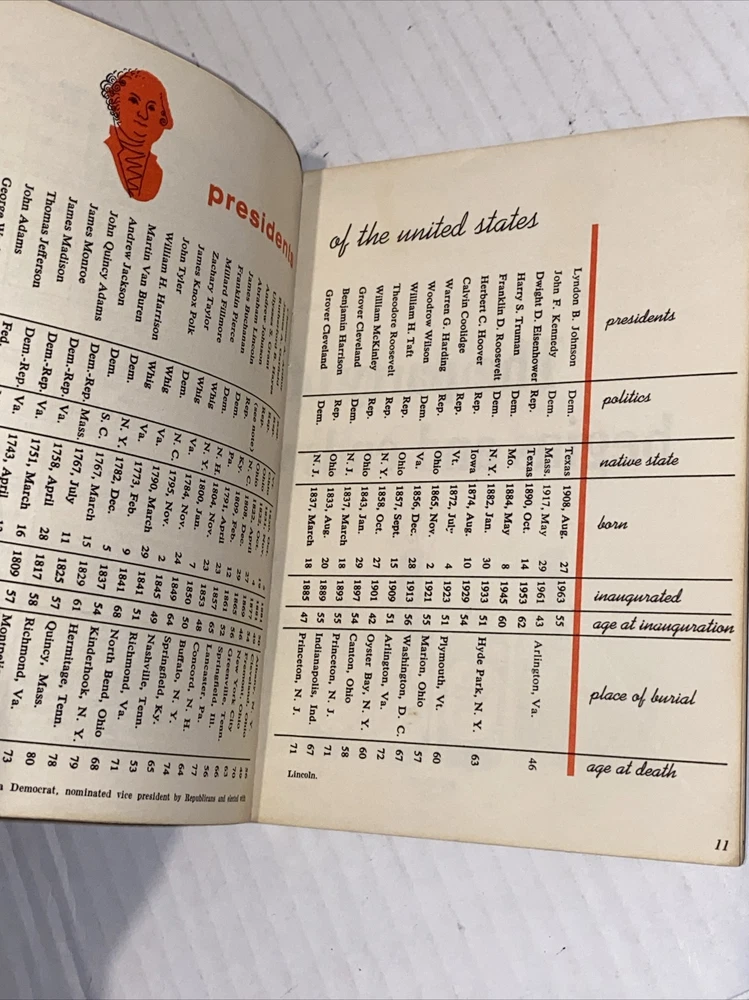 presidents
of the united states
presidents politics native state born inaugurated age at inauguration place of burial age at death
Lyndon B. Johnson Dem. Texas 1908, Aug. 27 1963 55
John F. Kennedy Dem. Mass. 1917, May 29 1961 43 Arlington, Va. 46
Dwight D. Eisenhower Rep. Texas 1890, Oct. 14 1953 62
Harry S. Truman Dem. Mo. 1884, May 8 1945 60
Franklin D. Roosevelt Dem. N. Y. 1882, Jan. 30 1933 51 Hyde Park, N. Y. 63
Herbert C. Hoover Rep. Iowa 1874, Aug. 10 1929 54
Calvin Coolidge Rep. Vt. 1872, July 4 1923 51 Plymouth, Vt. 60
Warren G. Harding Rep. Ohio 1865, Nov. 2 1921 55 Marion, Ohio 57
Woodrow Wilson Dem. Va. 1856, Dec. 28 1913 56 Washington, D. C. 67
William H. Taft Rep. Ohio 1857, Sept. 15 1909 51 Arlington, Va. 72
Theodore Roosevelt Rep. N. Y. 1858, Oct. 27 1901 42 Oyster Bay, N. Y. 60
William McKinley Rep. Ohio 1843, Jan. 29 1897 54 Canton, Ohio 58
Grover Cleveland Dem. N. J. 1837, March 18 1893 55 Princeton, N. J. 71
Benjamin Harrison Rep. Ohio 1833, Aug. 20 1889 55 Indianapolis, Ind. 67
Grover Cleveland Dem. N. J. 1837, March 18 1885 47 Princeton, N. J. 71
Andrew Johnson (see note) N. C. 1808, Dec.
Abraham Lincoln Rep. Ky. 1809, Feb. 12 1861 52 Springfield, Ill. 56
James Buchanan Dem. Pa. 1791, April 23 1857 65 Lancaster, Pa. 77
Franklin Pierce Dem. N. H. 1804, Nov. 23 1853 48 Concord, N. H. 64
Millard Fillmore Whig N. Y. 1800, Jan. 7 1850 50 Buffalo, N. Y. 74
Zachary Taylor Whig Va. 1784, Nov. 24 1849 64 Springfield, Ky. 65
James Knox Polk Dem. N. C. 1795, Nov. 2 1845 49 Nashville, Tenn. 53
John Tyler Whig Va. 1790, March 29 1841 51 Richmond, Va. 71
William H. Harrison Whig Va. 1773, Feb. 9 1841 68 North Bend, Ohio 68
Martin Van Buren Dem. N. Y. 1782, Dec. 5 1837 54 Kinderhook, N. Y. 79
Andrew Jackson Dem. S. C. 1767, March 15 1829 61 Hermitage, Tenn. 78
John Quincy Adams Dem.-Rep. Mass. 1767, July 11 1825 57 Quincy, Mass. 80
James Monroe Dem.-Rep. Va. 1758, April 28 1817 58 Richmond, Va. 73
James Madison Dem.-Rep. Va. 1751, March 16 1809 57
Thomas Jefferson Dem.-Rep. Va. 1743, April
John Adams Fed.
George
a Democrat, nominated vice president by Republicans and elected with
Lincoln.
11